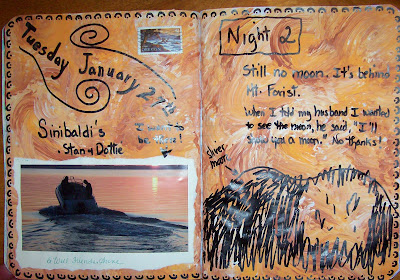 Tuesday
January 27th
Siribaldi's
- Stan & Dottie
I want to
be there!
Night 2
Still no moon. It's behind
Mt. Forist.
When I told my husband I wanted
to see the moon, he said, "I'll
show you a moon." No thanks!
sliver
moon